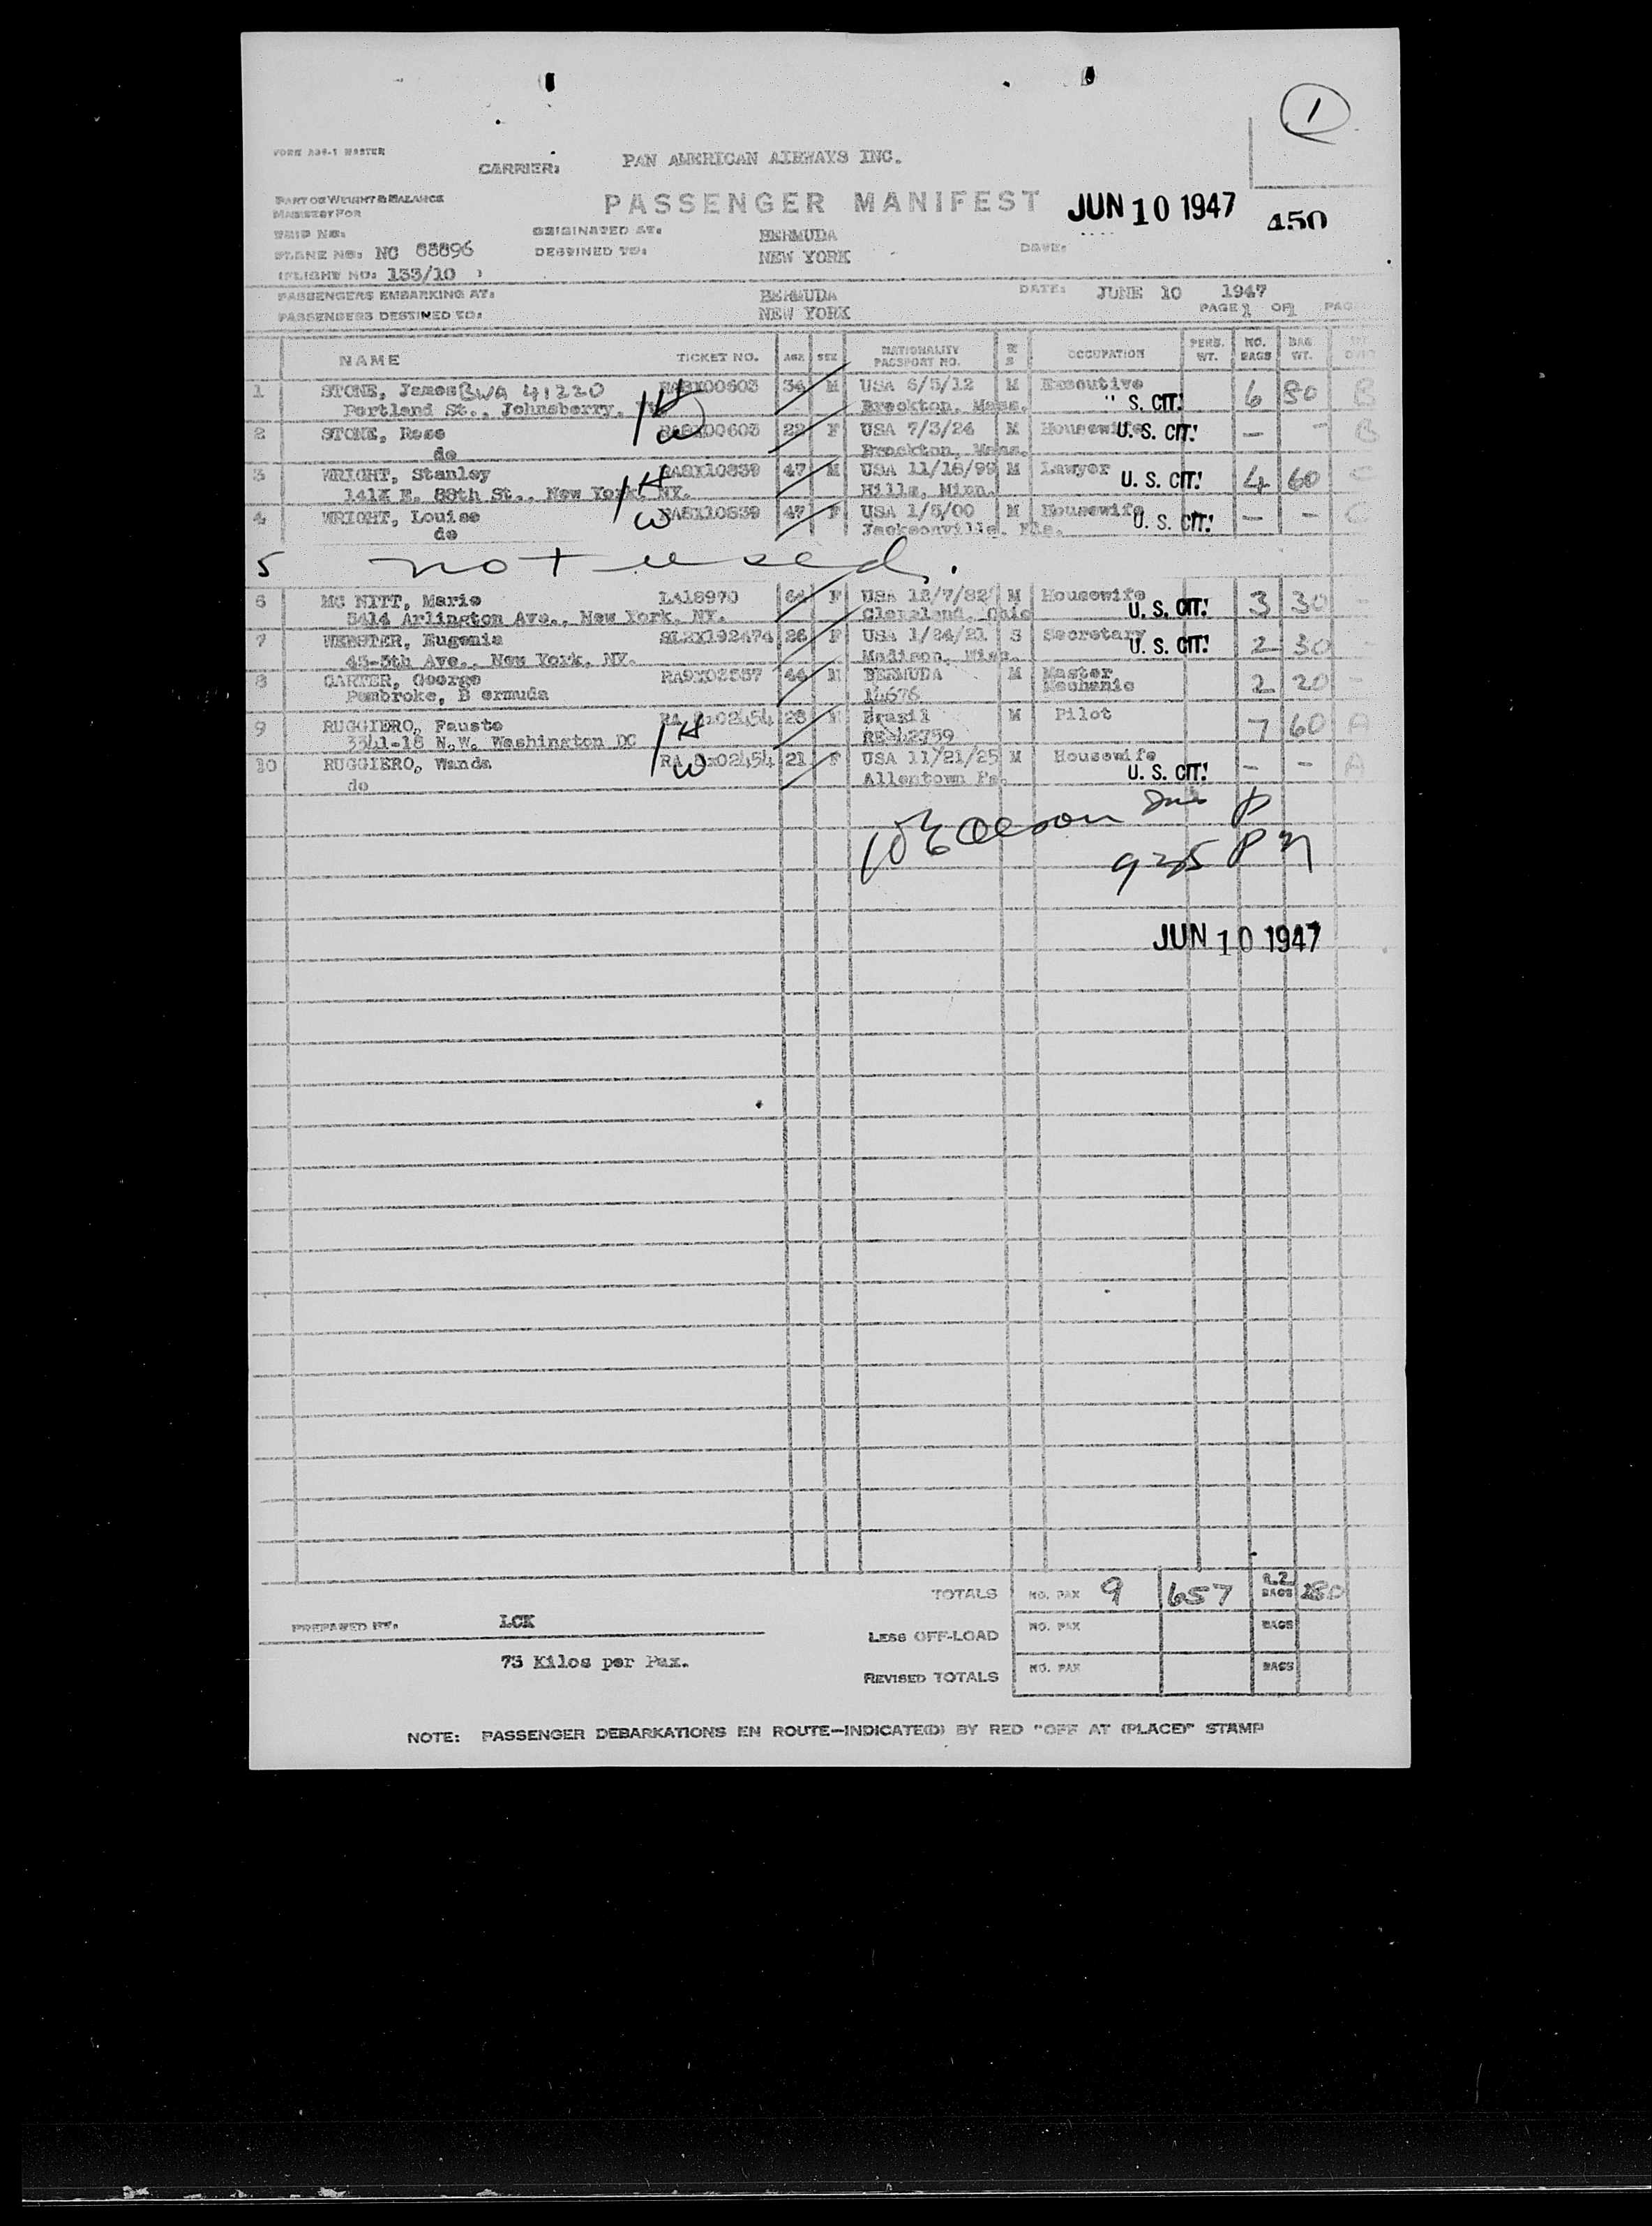 1
FORM AD4-1 MASTER
CARRIER: PAN AMERICAN AIRWAYS INC.
PART OF WEIGHT & BALANCE
MANIFEST FOR
PASSENGER MANIFEST JUN 10 1947 450
TRIP NO:
ORIGINATED AT: BERMUDA
PLANE NO: NC 88896 DESTINED TO: NEW YORK DATE:
(FLIGHT NO: 133/10 )
PASSENGERS EMBARKING AT: BERMUDA DATE: JUNE 10 1947
PASSENGERS DESTINED TO: NEW YORK PAGE 1 OF 1 PAG
NAME TICKET NO. AGE SEX NATIONALITY PASSPORT NO. M S OCCUPATION PERS. WT. NO. BAGS BAG WT.
1 STONE, James BWA 41220 RA8X00603 34 M USA 6/5/12 M Executive 6 80 B
Portland St., Johnsberry, Brockton, Mass. S. CIT.
2 STONE, Rose RA8X00603 22 F USA 7/3/24 M Housewife U. S. CIT. — - B
do Brockton, Mass.
3 WRIGHT, Stanley H RA8X10839 47 M USA 11/16/99 M Lawyer U. S. CIT. 4 60 C
E. 88th St., New York, NY. Hills, Minn.
4 WRIGHT, Louise W RA8X10839 47 F USA 1/5/00 M Housewife U. S. CIT. - - C
do Jacksonville, Fla.
5 not used.
6 MC NITT, Marie LA18970 64 F USA 12/7/82 M Housewife U. S. CIT. 3 30 -
5414 Arlington Ave., New York, NY. Cleveland, Ohio
7 WEBSTER, Eugenia SL2X192474 26 F USA 1/24/21 S Secretary U. S. CIT. 2 30 -
45-5th Ave., New York, NY. Madison,
8 CARTER, George RA9X03557 44 M BERMUDA M Master Mechanic 2 20 -
Pembroke, B ermuda 14676
9 RUGGIERO, Fausto H RA 8x02454 28 M Brazil M Pilot 7 60 A
3341-18 N.W. Washington DC 42759
10 RUGGIERO, Wanda W RA 8x02454 21 F USA 11/21/25 M Housewife U. S. CIT. - - A
do Allentown Pa.
925 PM
JUN 10 1947
TOTALS NO. PAX 9 657 BAGS 280
PREPARED BY: LCK LESS OFF-LOAD NO. PAX BAGS
73 Kilos per Pax. REVISED TOTALS NO. PAX BAGS
NOTE: PASSENGER DEBARKATIONS EN ROUTE—INDICATE(D) BY RED "OFF AT (PLACE)" STAMP